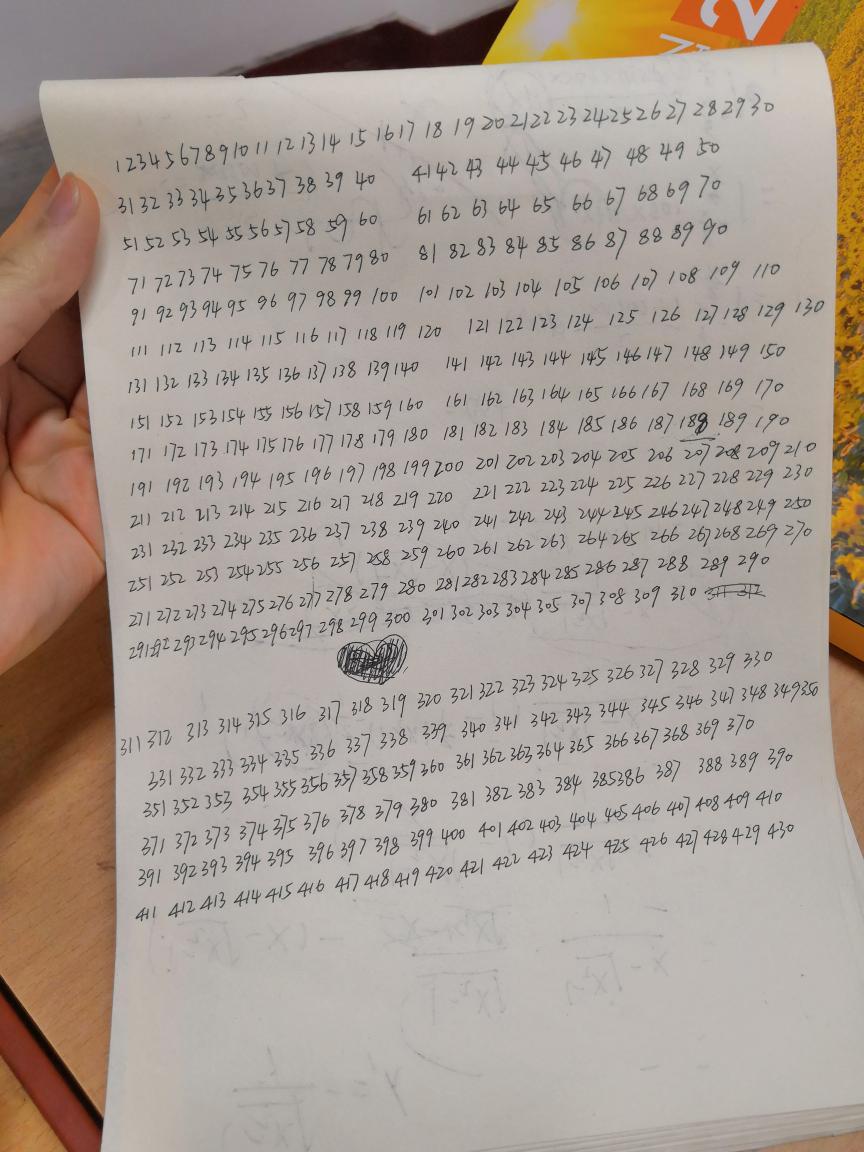 N
2
1 2 3 4 5 6 7 8 9 10 11 12 13 14 15 16 17 18 19 20 21 22 23 24 25 26 27 28 29 30
31 32 33 34 35 36 37 38 39 40 41 42 43 44 45 46 47 48 49 50
51 52 53 54 55 56 57 58 59 60 61 62 63 64 65 66 67 68 69 70
71 72 73 74 75 76 77 78 79 80 81 82 83 84 85 86 87 88 89 90
91 92 93 94 95 96 97 98 99 100 101 102 103 104 105 106 107 108 109 110
111 112 113 114 115 116 117 118 119 120 121 122 123 124 125 126 127 128 129 130
131 132 133 134 135 136 137 138 139 140 141 142 143 144 145 146 147 148 149 150
151 152 153 154 155 156 157 158 159 160 161 162 163 164 165 166 167 168 169 170
171 172 173 174 175 176 177 178 179 180 181 182 183 184 185 186 187 188 189 190
191 192 193 194 195 196 197 198 199 200 201 202 203 204 205 206 207 208 209 210
211 212 213 214 215 216 217 218 219 220 221 222 223 224 225 226 227 228 229 230
231 232 233 234 235 236 237 238 239 240 241 242 243 244 245 246 247 248 249 250
251 252 253 254 255 256 257 258 259 260 261 262 263 264 265 266 267 268 269 270
271 272 273 274 275 276 277 278 279 280 281 282 283 284 285 286 287 288 289 290
291 292 293 294 295 296 297 298 299 300 301 302 303 304 305 307 308 309 310 311 312
311 312 313 314 315 316 317 318 319 320 321 322 323 324 325 326 327 328 329 330
331 332 333 334 335 336 337 338 339 340 341 342 343 344 345 346 347 348 349 350
351 352 353 354 355 356 357 358 359 360 361 362 363 364 365 366 367 368 369 370
371 372 373 374 375 376 378 379 380 381 382 383 384 385 386 387 388 389 390
391 392 393 394 395 396 397 398 399 400 401 402 403 404 405 406 407 408 409 410
411 412 413 414 415 416 417 418 419 420 421 422 423 424 425 426 427 428 429 430